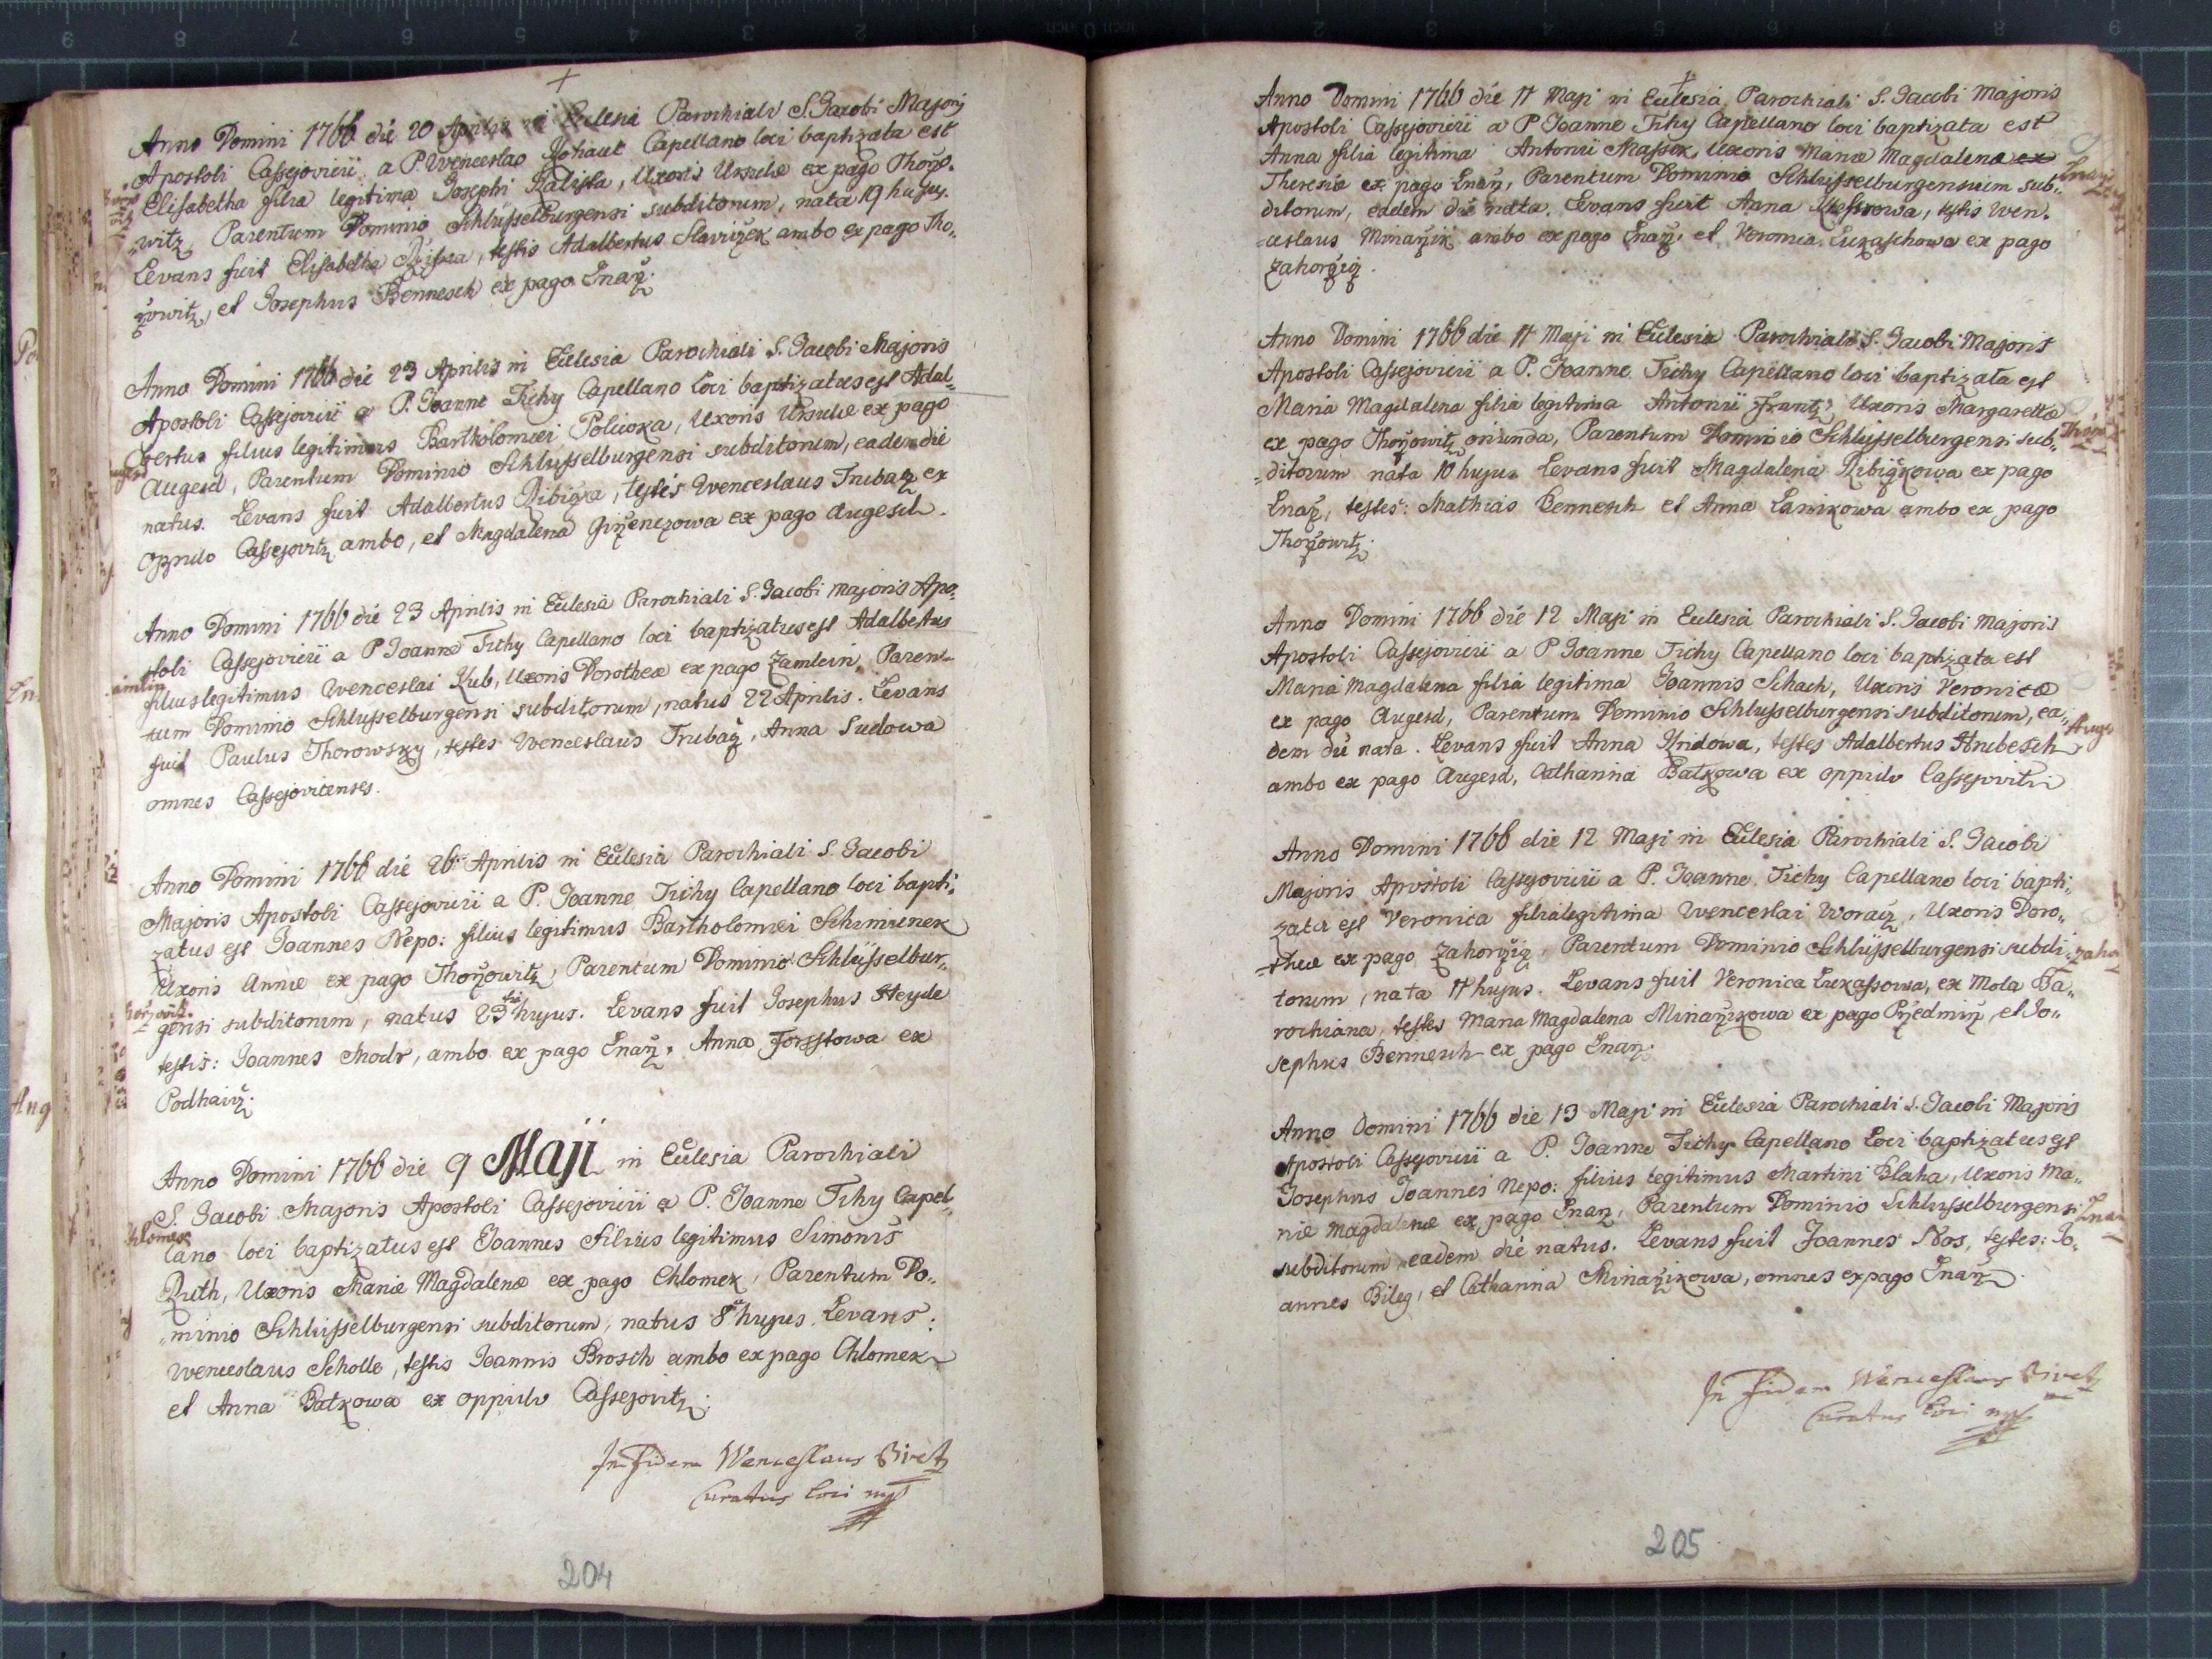 Anno Domini 1766 die 20 Aprilis in Ecclesia Parochiali S. Jacobi Majoris
Apostoli Cassejovicii a P. Wenceslao Capellano loci baptizata est
Elisabetha filia legitima Josephi Kalista, Uxoris Ursulæ ex pago Thorzo-
witz, Parentum Dominio Schlüsselburgensi subditorum, nata 19 hujus.
Levans fuit Elisabetha, testis Adalbertus Slaviczek ambo ex pago Tho-
rzowitz, et Josephus Bennesch ex pago Enarz.
Anno Domini 1766 die 23 Aprilis in Ecclesia Parochiali S. Jacobi Majoris
Apostoli Cassejovicii a P. Joanne Tichy Capellano Loci baptizatus est Adal-
bertus filius legitimus Bartholomæi Policzka, Uxoris Ursulæ ex pago
Augesd, Parentum Dominio Schlusselburgensi subditorum, eadem die
natus. Levans fuit Adalbertus Ribiczka, testes Wenceslaus Trubacz ex
Oppido Cassejovitz ambo, et Magdalena ex pago Augesd.
Anno Domini 1766 die 23 Aprilis in Ecclesia Parochiali S. Jacobi Majoris Apo-
stoli Cassejovicii a P Joanne Tichy Capellano loci baptizatus est Adalbertus
filius legitimus Wenceslai Kub, Uxoris Dorotheæ ex pago Zamlein, Paren-
tum Dominio Schlusselburgensi subditorum, natus 22 Aprilis. Levans
fuit Paulus Thorowsky, testes Wenceslaus Trubacz, Anna Sudowa
omnes Cassejovicenses.
Anno Domini 1766 die 26 Aprilis in Ecclesia Parochiali S. Jacobi
Majoris Apostoli Cassejovicii a P. Joanne Tichy Capellano loci bapti-
zatus est Joannes Nepo: filius legitimus Bartholomæi Schimunek
Uxoris Annæ ex pago Thorzowitz, Parentum Dominio Schlüsselbur-
gensi subditorum, natus 25 hujus. Levans fuit Josephus Heyde
testis: Joannes Modr, ambo ex pago Enarz, Anna Forsstowa ex
Podhay.
Anno Domini 1766 die 9 Maji in Ecclesia Parochiali
S. Jacobi Majoris Apostoli Cassejovicii a P. Joanne Tichy Capel-
Chlomek
lano loci baptizatus est Joannes filius legitimus Simonis
Ruth, Uxoris Mariæ Magdalenæ ex pago Chlomek, Parentum Do-
minio Schlüsselburgensi subditorum, natus 8 hujus. Levans:
Wenceslaus Scholle, testis Joannis Brosch ambo ex pago Chlomek
et Anna Batkowa ex oppido Cassejovitz.
In Fidem Wenceslaus Bivetz
Curatus loci mp
204
Anno Domini 1766 die 11 Maji in Ecclesia Parochiali S. Jacobi Majoris
Apostoli Cassejovicii a P Joanne Tichy Capellano loci baptizata est
Anna filia legitima Antonii Massek, Uxoris Mariæ Magdalenæ ex
Theresiæ ex pago Enarz, Parentum Dominio Schlüsselburgensium sub-
ditorum, eadem die nata. Levans fuit Anna, testis Wen-
ceslaus Minarzik ambo ex pago Enarz, et Veronica Lukaschowa ex pago
Zahorzicz.
Anno Domini 1766 die 11 Maji in Ecclesia Parochiali S. Jacobi Majoris
Apostoli Cassejovicii a P. Joanne Tichy Capellano loci baptizata est
Maria Magdalena filia legitima Antonii Frantz, Uxoris Margarettæ
ex pago Thorzowitz oriunda, Parentum Dominio Schlüsselburgensi sub-
ditorum nata 10 hujus Levans fuit Magdalena Ribiczkowa ex pago
Enarz, testes: Mathias Bennesch et Anna Lanikowa ambo ex pago
Thorzowitz.
Anno Domini 1766 die 12 Maji in Ecclesia Parochiali S. Jacobi Majoris
Apostoli Cassejovicii a P Joanne Tichy Capellano loci baptizata est
Maria Magdalena filia legitima Joannis Schach, Uxoris Veronicæ
ex pago Augesd, Parentum Dominio Schlusselburgensi subditorum, ea-
dem die nata. Levans fuit Anna Hridowa, testes Adalbertus Hrubesch
ambo ex pago Augesd, Catharina Batkowa ex oppido Cassejovitz
Anno Domini 1766 die 12 Maji in Ecclesia Parochiali S. Jacobi
Majoris Apostoli Cassejovicii a P. Joanne Tichy Capellano loci bapti-
zata est Veronica filia legitima Wenceslai Woracz, Uxoris Doro-
theæ ex pago Zahorzicz, Parentum Dominio Schlüsselburgensi subdi-
torum, nata 11 hujus. Levans fuit Veronica Lukassowa, ex Mola Pa-
rochiana, testes Maria Magdalena Minarzikowa ex pago Przedmirz, et Jo-
sephus Bennesch ex pago Enarz.
Anno Domini 1766 die 13 Maji in Ecclesia Parochiali S. Jacobi Majoris
Apostoli Cassejovicii a P. Joanne Tichy Capellano Loci baptizatus est
Josephus Joannes Nepo: filius legitimus Martini Blaha, Uxoris Ma-
riæ Magdalenæ ex pago Enarz, Parentum Dominio Schlusselburgensi
subditorum eadem die natus. Levans fuit Joannes Nos, testes: Jo-
annes Bileg, et Catharina Minarzikowa, omnes ex pago Enarz.
In Fidem Wenceslaus Bivetz
Curatus loci mp
205